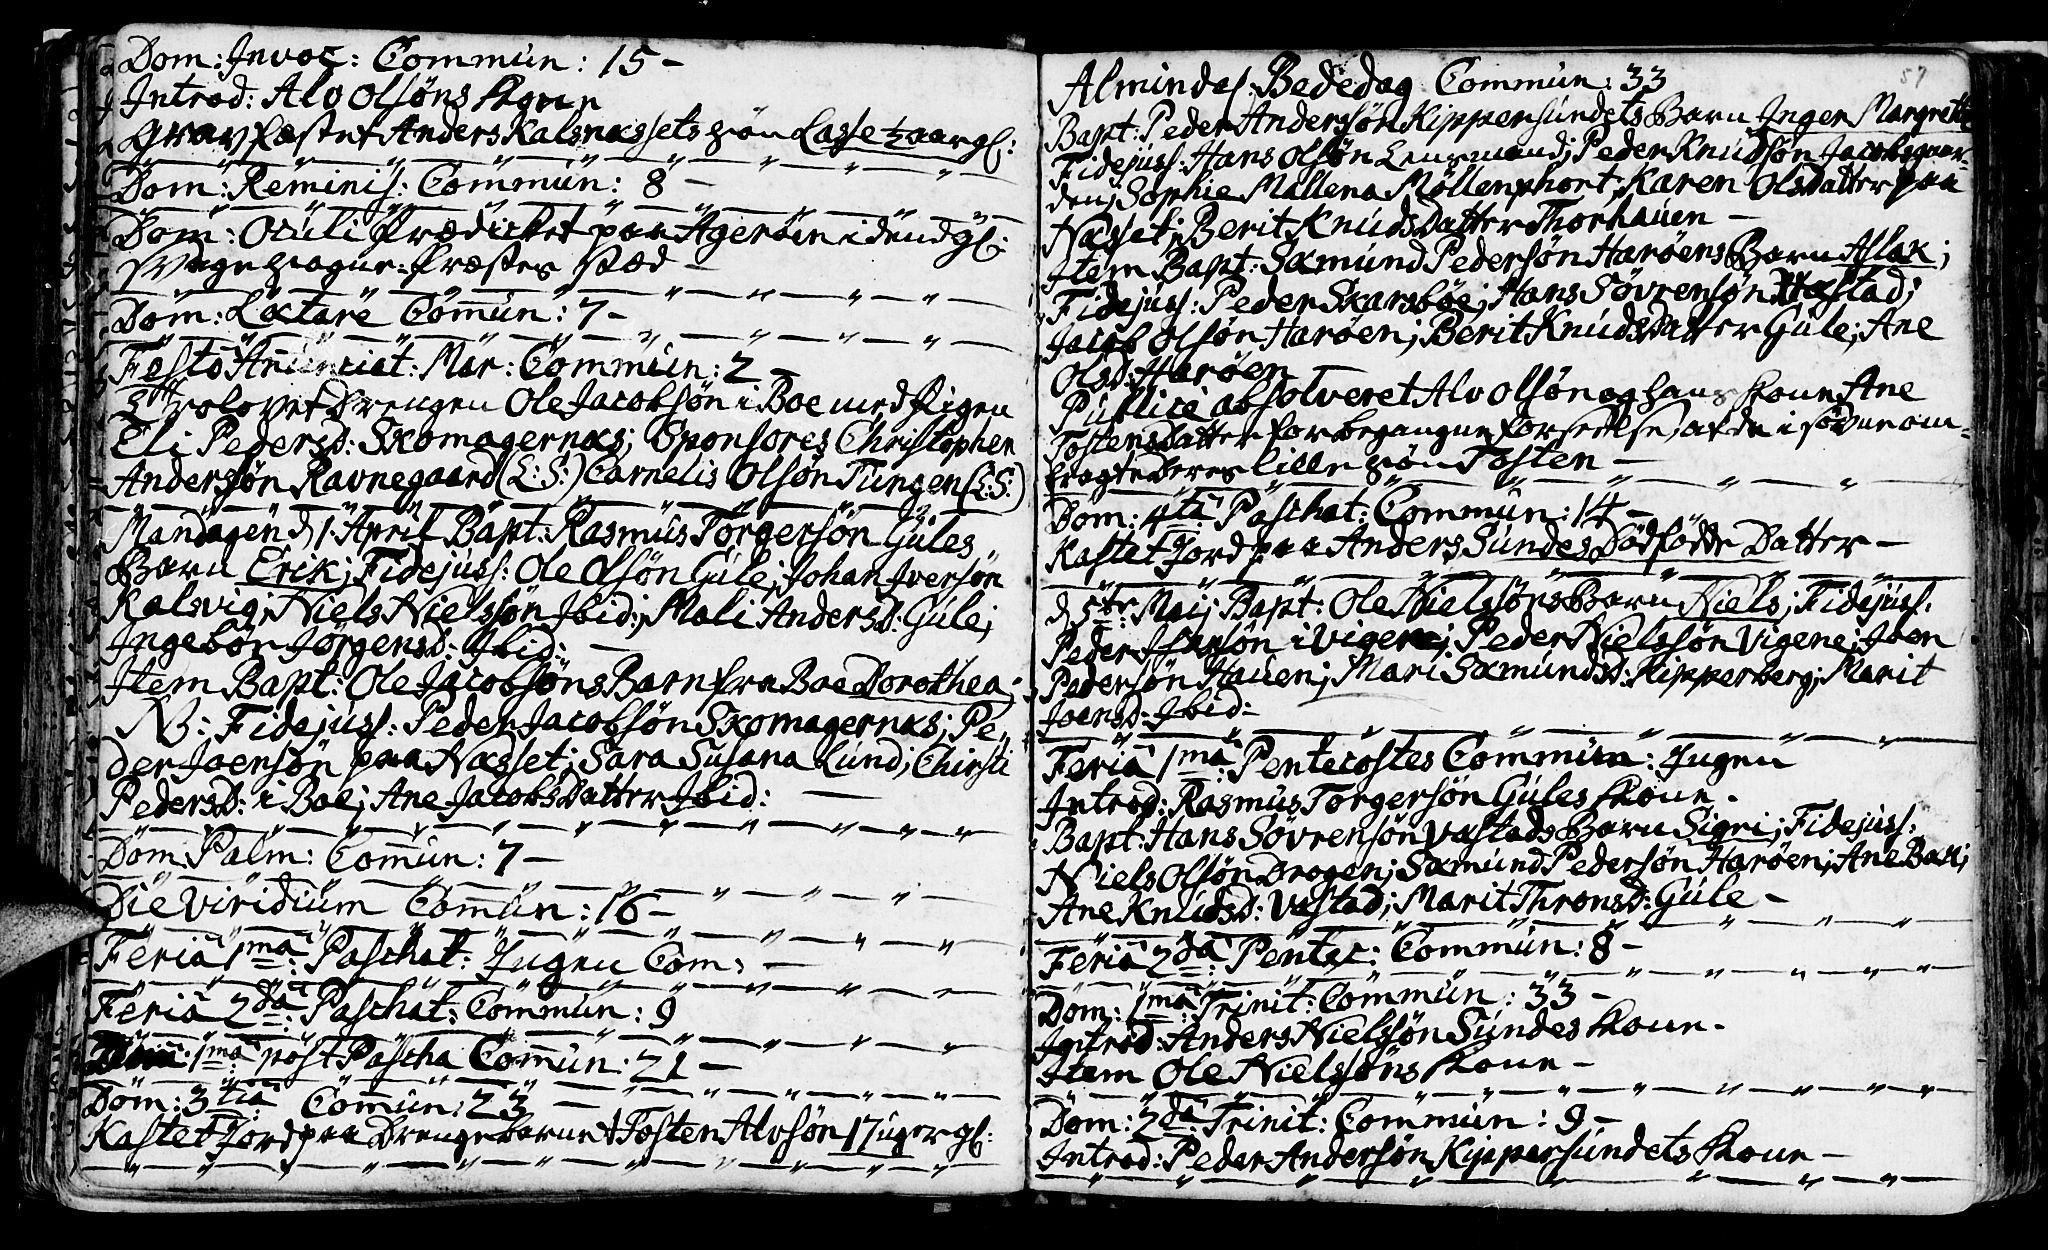 Dom: Invoc: Commun: 15 –
Introd: Alv Olsöns Kone
Gravfæstet Anders Kalsnæssets Søn Lasse ½ aar gl:
Dom: Reminis: Commun: 8 –
Dom: Oculi Prædicket paa Agerøen i dend gl:
Præstes stæd –
Dom: Lætare Comun: 7 –
Festo Anunciat: Mar: Commun: 2 –
Trolovet Drengen Ole Jacobsön i Boe med Pigen
Eli Pedersd: Skomagernæs; Sponsores Christopher
Andersön Ravnegaard (L:S:) Cornelis Olsön Tungen (L:S:)
Mandagen d 1 April Bapt: Rasmus Torgersön Gules
Barn Erik; Fidejuss: Ole Olsön Gule; Johan Iversön
Kalsvig; Niels Nielssön Ibid:; Mali Andersd: Gule;
Ingebör Jörgensd: Ibid: –
Item Bapt: Ole Jacobsöns Barn fra Boe Dorothea;
NB: Fidejuss: Peder Jacobsön Skomagernæs; Pe„
der Joensön paa Næsset; Sara Susana Lund; Chirsti
Pedersd: i Boe; Ane Jacobsdatter Ibid: –
Dom: Palm: Comun: 7 –
Die Viridium Comun: 16 –
Feria 1ma: Paschat: Ingen Com: –
Feria 2da: Paschat: Commun: 9
Dom: 1ma: post Pascha Comun: 21 –
Dom: 3tia: Comun: 23 –
Kastet Jord paa Drengebarnet Tosten Alvsön 17 uger gl:
57
Almindel: Bededag Commun: 33
Bapt: Peder Andersön Kippersundets Barn Inger Margrethe
Fidejuss: Hans Olsön Lensmand; Peder Knudsön Jacobsgaar-
den; Sophie Mallena Möllenphort; Karen Olsdatter paa
Næsset; Berit Knudsdatter Thorhauen –
Item Bapt: Sæmund Pedersön Haröens Barn Aslak;
Fidejuss: Peder Skarsböe; Hans Sövrensön Vestad;
Jacob Olsön Haröen; Berit Knudsdatter Gule; Ane
Olsd: Haröen
Publice absolveret Alv Olsön og hans Kone Ane
Tostensdatter for begangne forseelse, at de i sövne om-
bragte deres lille Søn Tosten –
Dom: 4ta Paschat: Commun: 14 –
Kastet Jord paa Anders Sundes Dödfödde Datter –
d 5te: Maj Bapt: Ole Nielssöns Barn Niels; Fidejuss:
Peder i Vigene; Peder Nielssön Vigene; Joen
Pedersön Hauen; Mari Sæmundsd: Kipperberg; Marit
Joensd: Ibid:
Feria 1ma: Pentecostes Commun: Ingen
Introd: Rasmus Torgersön Gules Kone –
Bapt: Hans Sövrensön Vastads Barn Sigri; Fidejuss:
Niels Olsön Drogen; Sæmund Pedersön Haröen; Ane Bax;
Ane Knudsd: Vastad; Marit Thronsd: Gule –
Feria 2da: Pentec: Commun: 8 –
Dom: 1ma: Trinit: Commun: 33 –
Introd: Anders Nielssön Sundes Kone –
Item Ole Nielssöns Kone –
Dom: 2da Trinit: Commun: 9 –
Introd: Peder Andersön Kippersundets Kone –